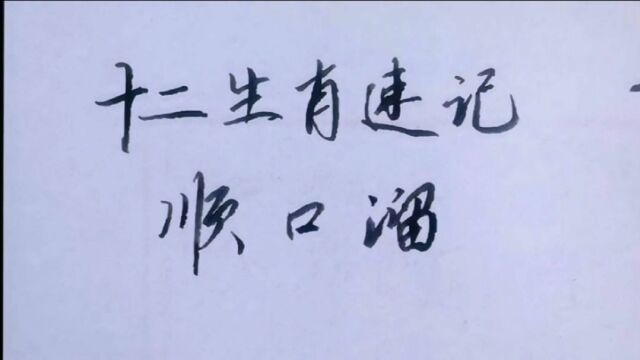 十二生肖速记
顺口溜